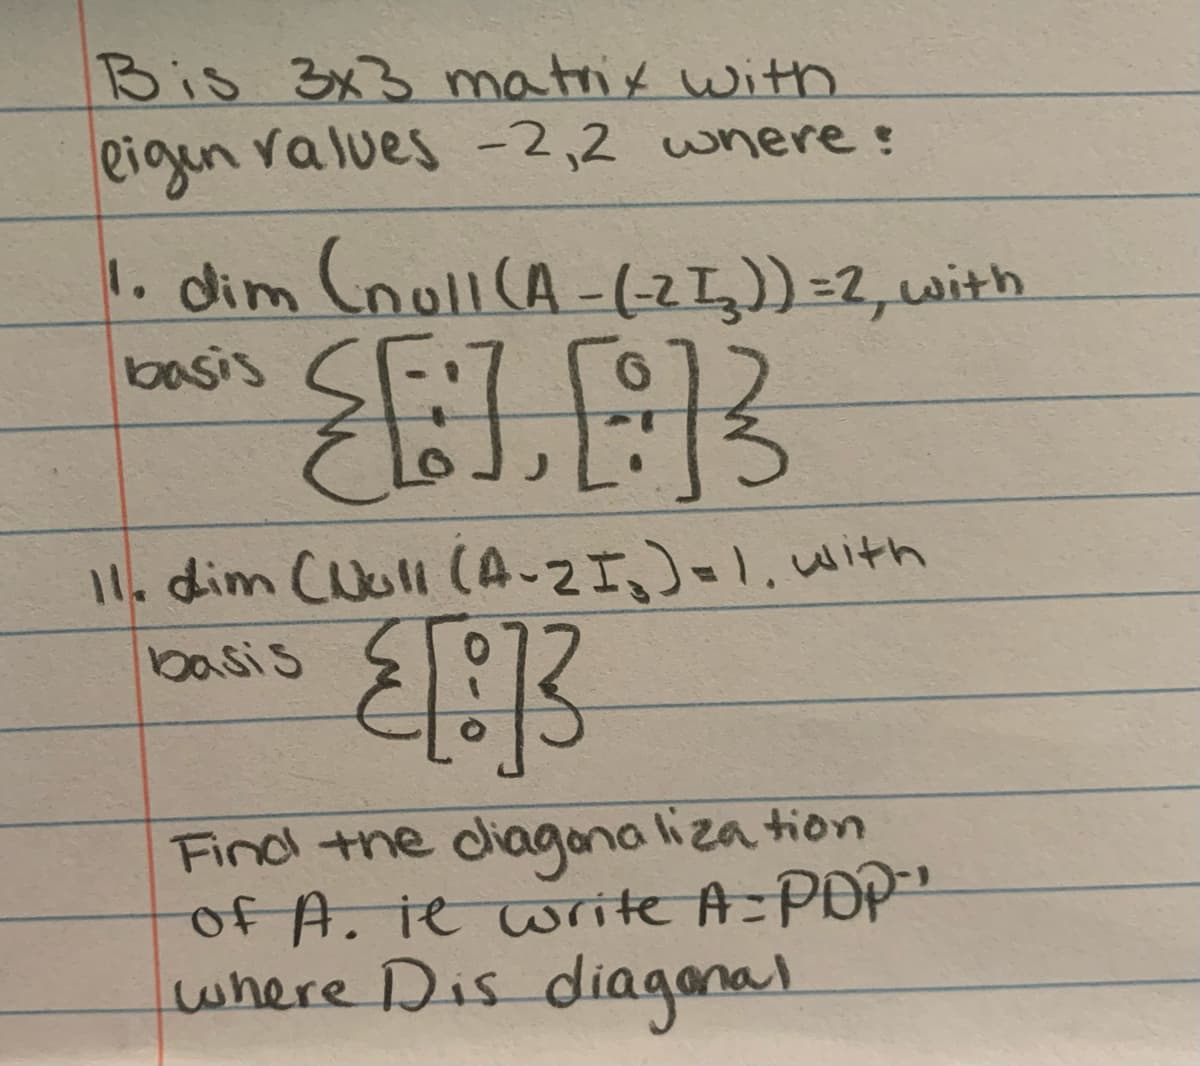 B is 3x3 matrix with
eigen values -2,2 where:
1. dim (null(A-(-2I₃))=2, with
basis {[-1 1 0], [0 -1 1]}
11. dim (Null (A-2I₃)=1, with
basis {[0 1 0]}
Find the diagonalization
of A. ie write A=PDP⁻¹
where D is diagonal